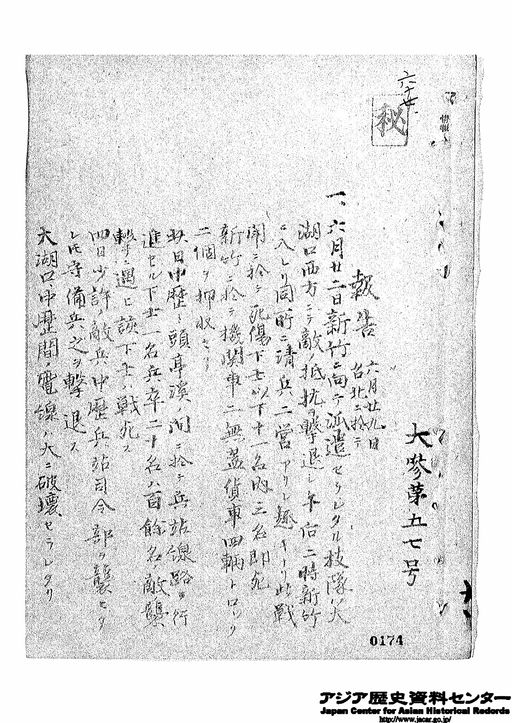 六ノ廿七
秘
情報
大参第五七号
報告 六月廿九日
台北ニ於テ
一、六月廿二日新竹ニ向テ派遣セラレタル枝隊ハ大
湖口西方ニテ敵ノ抵抗ヲ撃退シ午后二時新竹
ニ入レリ同町ニ清兵二営アリシ趣キナリ此戦
闘ニ於テ死傷下士以下十一名内三名即死
新竹ニ於テ機関車二無蓋貨車四輌トロック
二個ヲ押収セリ
中歴ト頭亭溪ノ間ニ於テ兵站線路ヲ行
進セル下士一名兵卒二十名ハ百餘名ノ敵襲
撃ニ遇ヒ該下士ハ戦死ス
四日少許ノ敵兵中歴兵站司令部ヲ襲セ
シモ守備兵之ヲ撃退ス
大湖口中歴間ノ電線ハ大ニ破壊セラレタリ
0174
アジア歴史資料センター
Japan Center for Asian Historical Records
http://www.jacar.go.jp/